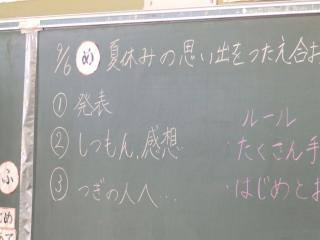 9/6 め 夏休みの思い出をつたえ合お
① 発表
② しつもん、感想
③ つぎの人へ…
ルール
・たくさん手
・はじめとお
ふ